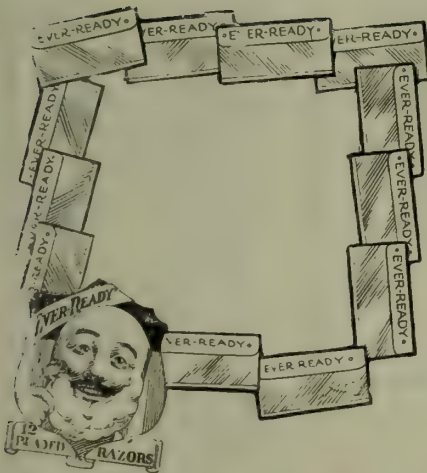 EVER-READY
VER-READY
EVER-READY
VER-READY
EVER-READY
EVER-READY
EVER-READY
EVER-READY
EVER-READY
READY
EVER-READY
VER-READY
EVER READY
12
BLADED RAZORS